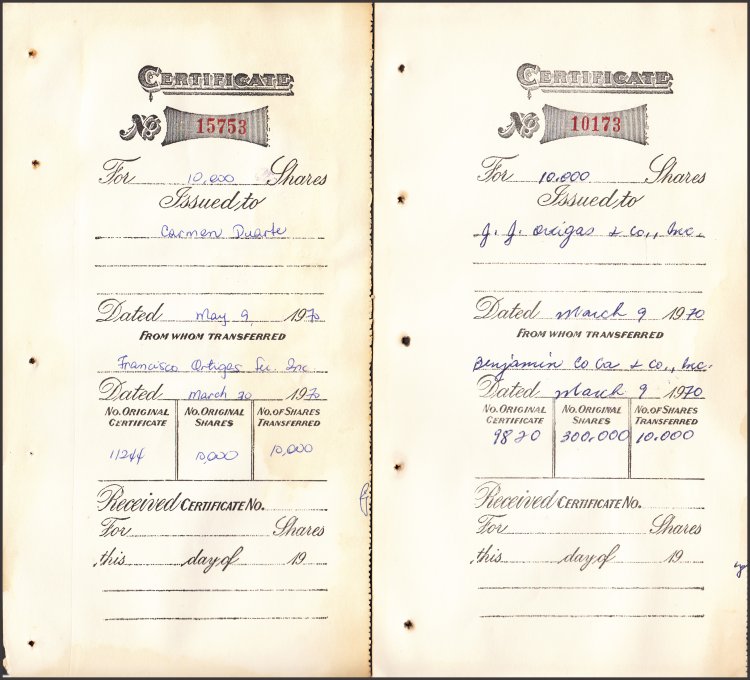 CERTIFICATE
No. 15753
For 10,000 Shares
Issued to
Carmen Duarte
Dated May 9, 1970
FROM WHOM TRANSFERRED
Francisco Ortigas Sec. Inc.
Dated March 20 1970
No. ORIGINAL CERTIFICATE No. ORIGINAL SHARES No. OF SHARES TRANSFERRED
11244 10,000 10,000
Received CERTIFICATE No.
For Shares
this day of 19
CERTIFICATE
No. 10173
For 10.000 Shares
Issued to
J. J. & Co., Inc.
Dated March 9 1970
FROM WHOM TRANSFERRED
Benjamin Co Ca & Co., Inc.
Dated March 9 1970
No. ORIGINAL CERTIFICATE No. ORIGINAL SHARES No. OF SHARES TRANSFERRED
9820 300.000 10.000
Received CERTIFICATE No.
For Shares
this day of 19